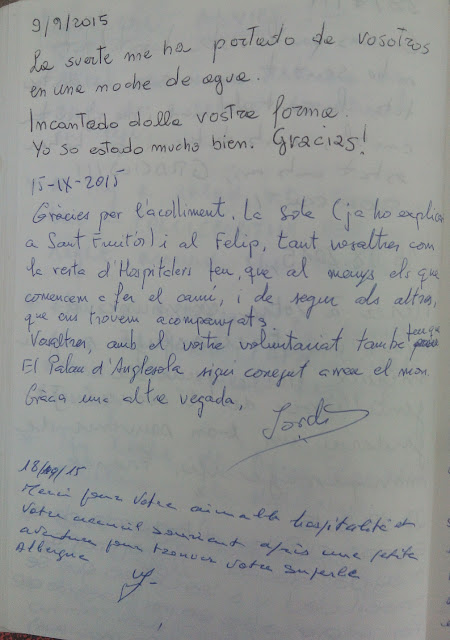 9/9/2015
La suerte me ha portado da vosotros
en una noche de agua.
Incantado dalla vostra forma.
Yo so estado mucho bien. Gracias!
15-IX-2015
Gràcies per l'acolliment. La Sole (ja ho explica
a Sant Fruitós) i al Felip, tant vosaltres com
la resta d'Hospitalers feu, que al menys els que
comencem a fer el camí, i de segur als altres,
que ens trovem acompanyats
Vosaltres, amb el vostre voluntariat també feu que
El Palau d'Anglesola sigui conegut arreu el mon.
Gràcia una altre vegada,
Jordi
18/09/15
Merci pour votre aimable hospitalité et
votre accueil souriant après une petite
aventure pour trouver votre superbe
Albergue